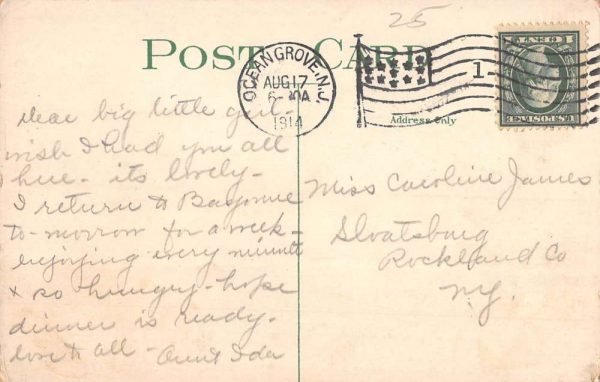 25
POST CARD
OCEAN GROVE, N.J.
AUG 17
6-30A
1914
1
Address Only
Dear big little girl-
wish I had you all
here - its lovely -
I return to Bayonne
to-morrow for a week -
enjoying every minute
& so hungry - hope
dinner is ready.
love to all - Aunt Ida
Miss Caroline James
Sloatsburg
Rockland Co
N.Y.